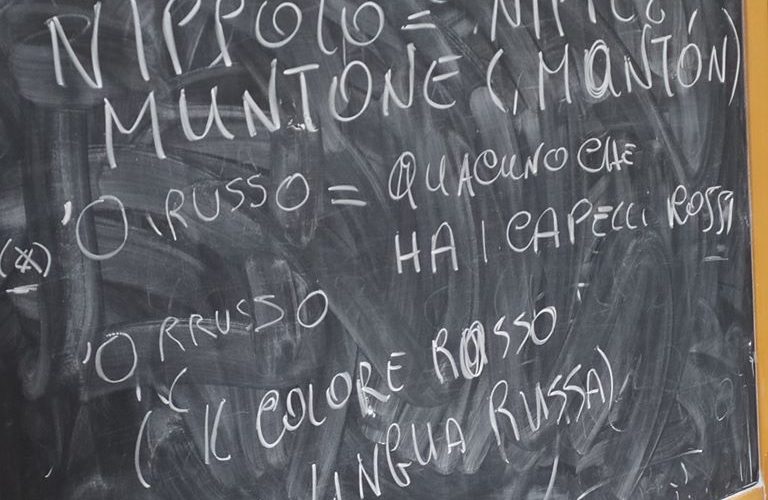 NIPPOLO =
MUNTONE (, MANTÓN)
'O RUSSO = QUACUNO CHE
HA I CAPELLI ROSSI
(*)
'O RRUSSO
( IL COLORE ROSSO
LINGUA RUSSA)